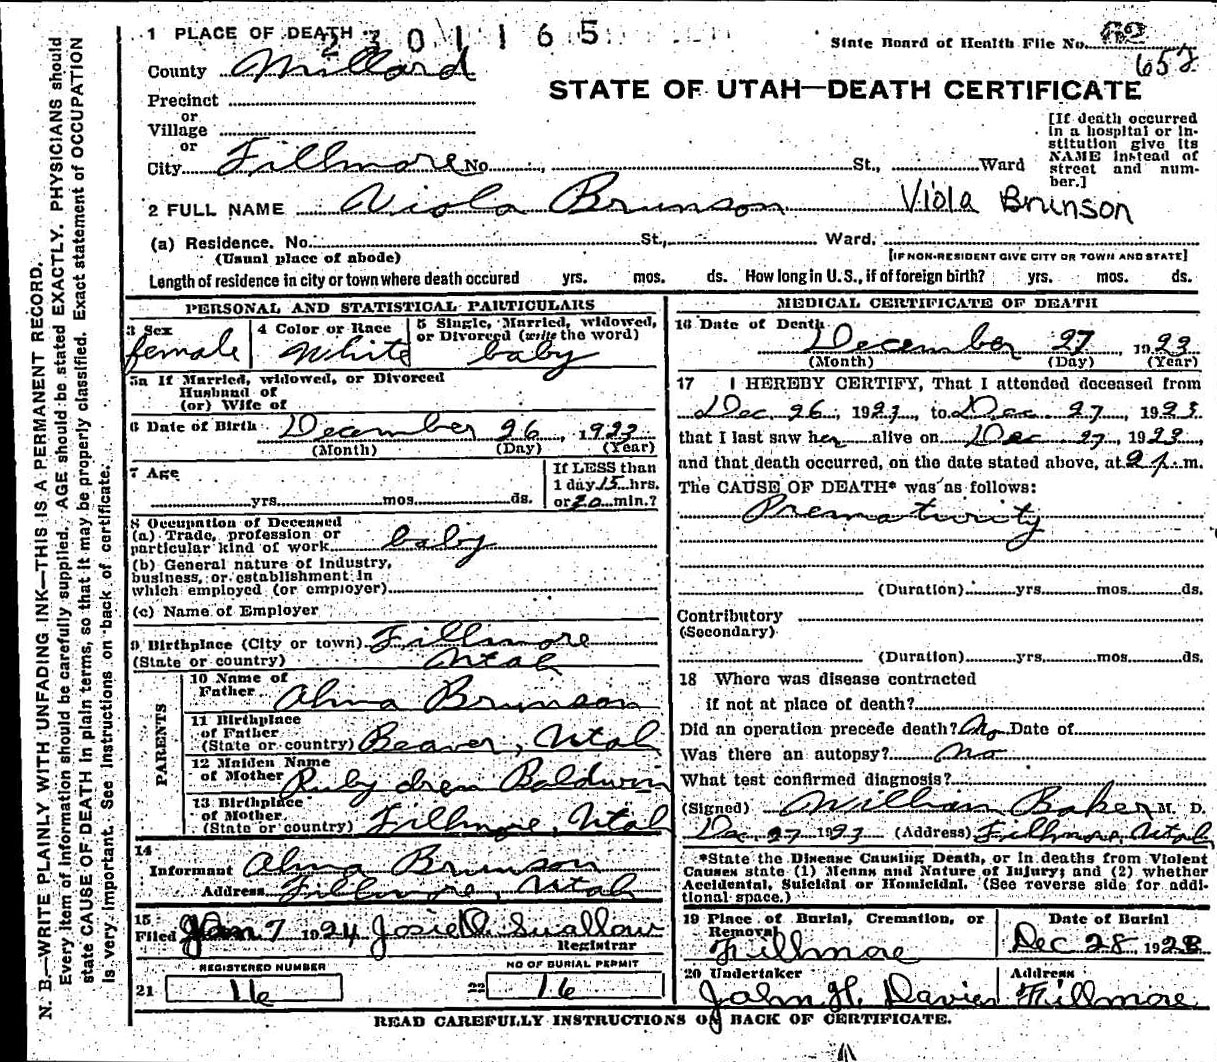 1 PLACE OF DEATH 2301165
State Board of Health File No. 62
652
County Millard
STATE OF UTAH—DEATH CERTIFICATE
Precinct
or
Village
or
City Fillmore No. St., Ward
[If death occurred in a hospital or institution give its NAME instead of street and number.]
2 FULL NAME Viola Brunson Viola Brunson
(a) Residence. No. St., Ward.
(Usual place of abode) [IF NON-RESIDENT GIVE CITY OR TOWN AND STATE]
Length of residence in city or town where death occured yrs. mos. ds. How long in U.S., if of foreign birth? yrs. mos. ds.
PERSONAL AND STATISTICAL PARTICULARS
3 Sex female
4 Color or Race White
5 Single, Married, widowed, or Divorced (write the word) baby
5a If Married, widowed, or Divorced
Husband of
(or) Wife of
6 Date of Birth December 26, 1923
(Month) (Day) (Year)
7 Age yrs. mos. ds.
If LESS than
1 day 15 hrs.
or 20 min.?
8 Occupation of Deceased
(a) Trade, profession or
particular kind of work baby
(b) General nature of industry,
business, or establishment in
which employed (or employer)
(c) Name of Employer
9 Birthplace (City or town) Fillmore
(State or country) Utah
PARENTS
10 Name of
Father Alma Brunson
11 Birthplace
of Father
(State or country) Beaver, Utah
12 Maiden Name
of Mother Ruby Baldwin
13 Birthplace
of Mother
(State or country) Fillmore, Utah
14
Informant Alma Brunson
Address Fillmore, Utah
15
Filed Jan 7 1924 Josie D. Swallow
Registrar
REGISTERED NUMBER
21 16
NO OF BURIAL PERMIT
22 16
MEDICAL CERTIFICATE OF DEATH
16 Date of Death
December 27 1923
(Month) (Day) (Year)
17 I HEREBY CERTIFY, That I attended deceased from
Dec 26, 1923, to Dec. 27, 1923
that I last saw her alive on Dec 27, 1923,
and that death occurred, on the date stated above, at 2 p. m.
The CAUSE OF DEATH* was as follows:
Prematurity
(Duration) yrs. mos. ds.
Contributory
(Secondary)
(Duration) yrs. mos. ds.
18 Where was disease contracted
if not at place of death?
Did an operation precede death? No Date of
Was there an autopsy? No
What test confirmed diagnosis?
(Signed) William Baker M. D.
Dec 27 1923 (Address) Fillmore, Utah
*State the Disease Causing Death, or in deaths from Violent
Causes state (1) Means and Nature of Injury; and (2) whether
Accidental, Suicidal or Homicidal. (See reverse side for addi-
tional space.)
19 Place of Burial, Cremation, or
Removal
Fillmore
Date of Burial
Dec 28 1923
20 Undertaker
John H. Davies
Address
Fillmore
READ CAREFULLY INSTRUCTIONS ON BACK OF CERTIFICATE.
N. B.—WRITE PLAINLY WITH UNFADING INK—THIS IS A PERMANENT RECORD.
Every item of information should be carefully supplied. AGE should be stated EXACTLY. PHYSICIANS should
state CAUSE OF DEATH in plain terms, so that it may be properly classified. Exact statement of OCCUPATION
is very important. See instructions on back of certificate.